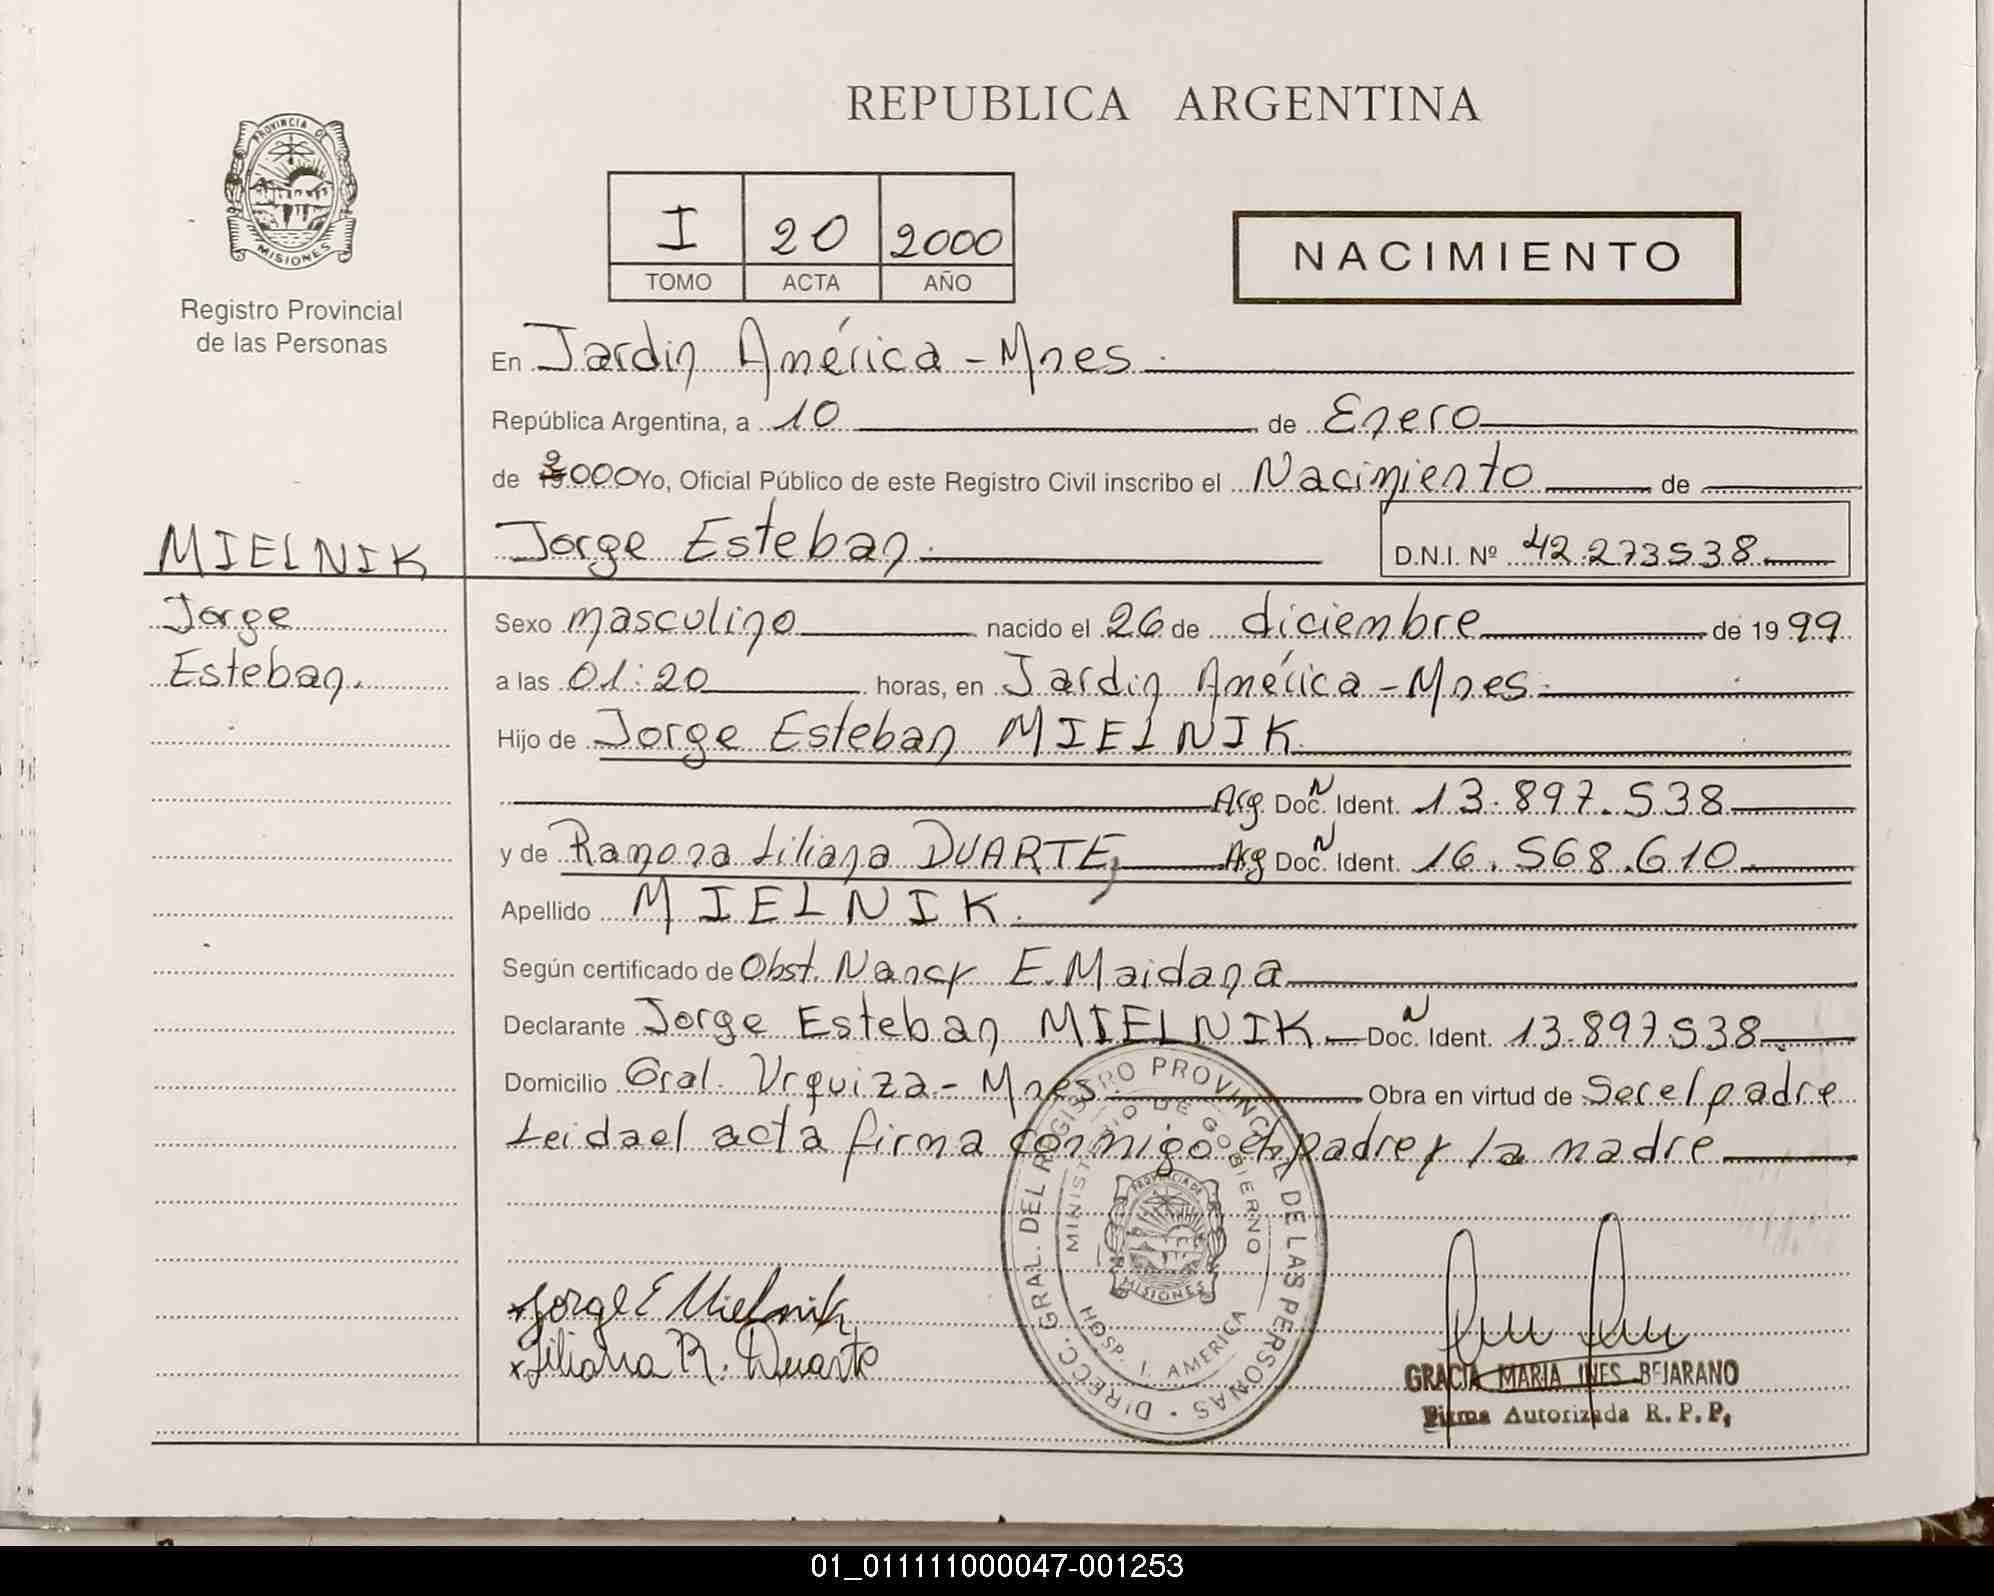 REPUBLICA ARGENTINA
PROVINCIA DE
MISIONES
Registro Provincial
de las Personas
I 20 2000
TOMO ACTA AÑO
NACIMIENTO
En Jardin América - Mnes.
República Argentina, a 10 de Enero
de 2000 Yo, Oficial Público de este Registro Civil inscribo el Nacimiento de
MIELNIK
Jorge Esteban. D.N.I. Nº 42.273538.
Jorge
Esteban.
Sexo masculino nacido el 26 de diciembre de 1999
a las 01:20 horas, en Jardin América - Mnes.
Hijo de Jorge Esteban MIELNIK.
Arg. Doc. N Ident. 13.897.538
y de Ramona Liliana DUARTE, Arg Doc. N Ident. 16.568.610.
Apellido MIELNIK.
Según certificado de Obst. Nancy E. Maidana
Declarante Jorge Esteban MIELNIK Doc. N Ident. 13.897538
Domicilio Gral. Urquiza - Mnes. Obra en virtud de Ser el padre
Leida el acta firma conmigo el padre y la madre
DIRECC. GRAL. DEL REGISTRO PROVINCIAL DE LAS PERSONAS
MINISTERIO DE GOBIERNO
PROVINCIA DE
MISIONES
HOSP. I. AMERICA
x Jorge E Mielnik
x Liliana R. Duarte
GRACIA MARIA INES BEJARANO
Firma Autorizada R. P. P.
01_011111000047-001253